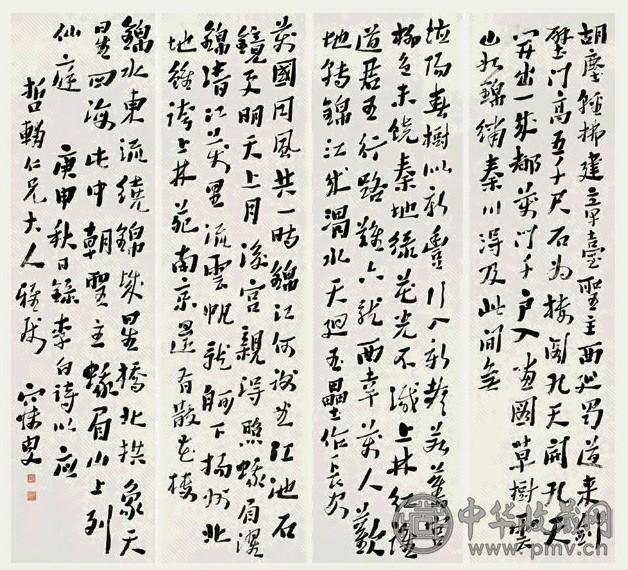 胡塵輕拂建章臺聖主西巡蜀道來劍
壁門高五千尺石為樓閣九天開九天
開出一成都萬門千戶入畫圖草樹雲
山如錦繡秦川得及此間無
華陽春樹似新豐行入新都若舊宮
柳色未饒秦地綠花光不減上林紅誰
道君王行路難六龍西幸萬人歡
地轉錦江成渭水天迴玉壘作長安
萬國同風共一時錦江何謝曲江池石
鏡更明天上月後宮親得照蛾眉濯
錦清江萬里流雲帆龍舸下揚州北
地雖誇上林苑南京還有散花樓
錦水東流繞錦城星橋北拱象天
星四海此中朝聖主蛾眉山上列
仙庭 庚申秋日錄李白詩以應
哲仁兄大人雅屬 叟
中华收藏网
www.pmv.cn